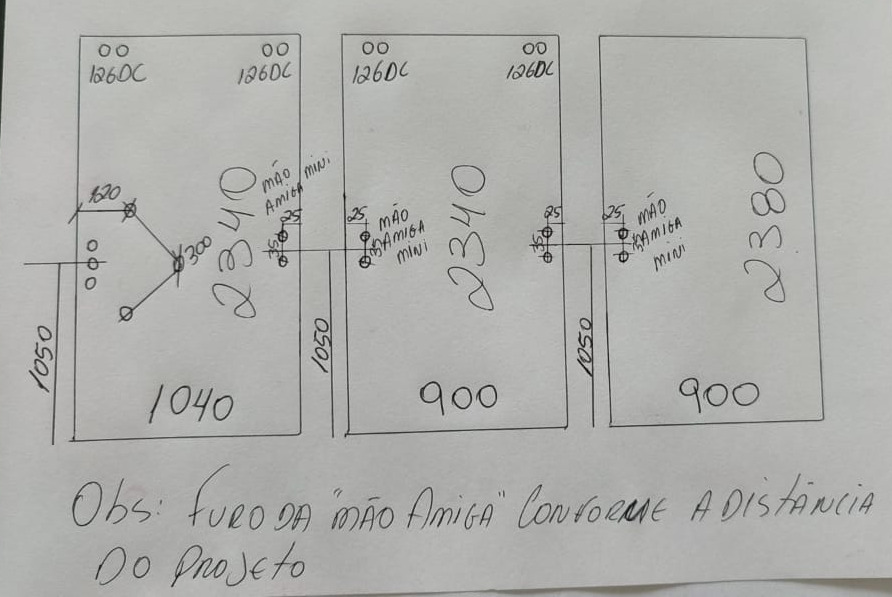 126DC
126DC
126DC
126DC
120
300
2340
MÃO MINI
AMIGA
25
35
1050
1040
25
MÃO
AMIGA
MINI
35
2340
25
35
1050
900
25
MÃO
AMIGA
MINI
35
2380
1050
900
Obs: FURO DA "MÃO AMIGA" CONFORME A DISTÂNCIA
DO PROJETO